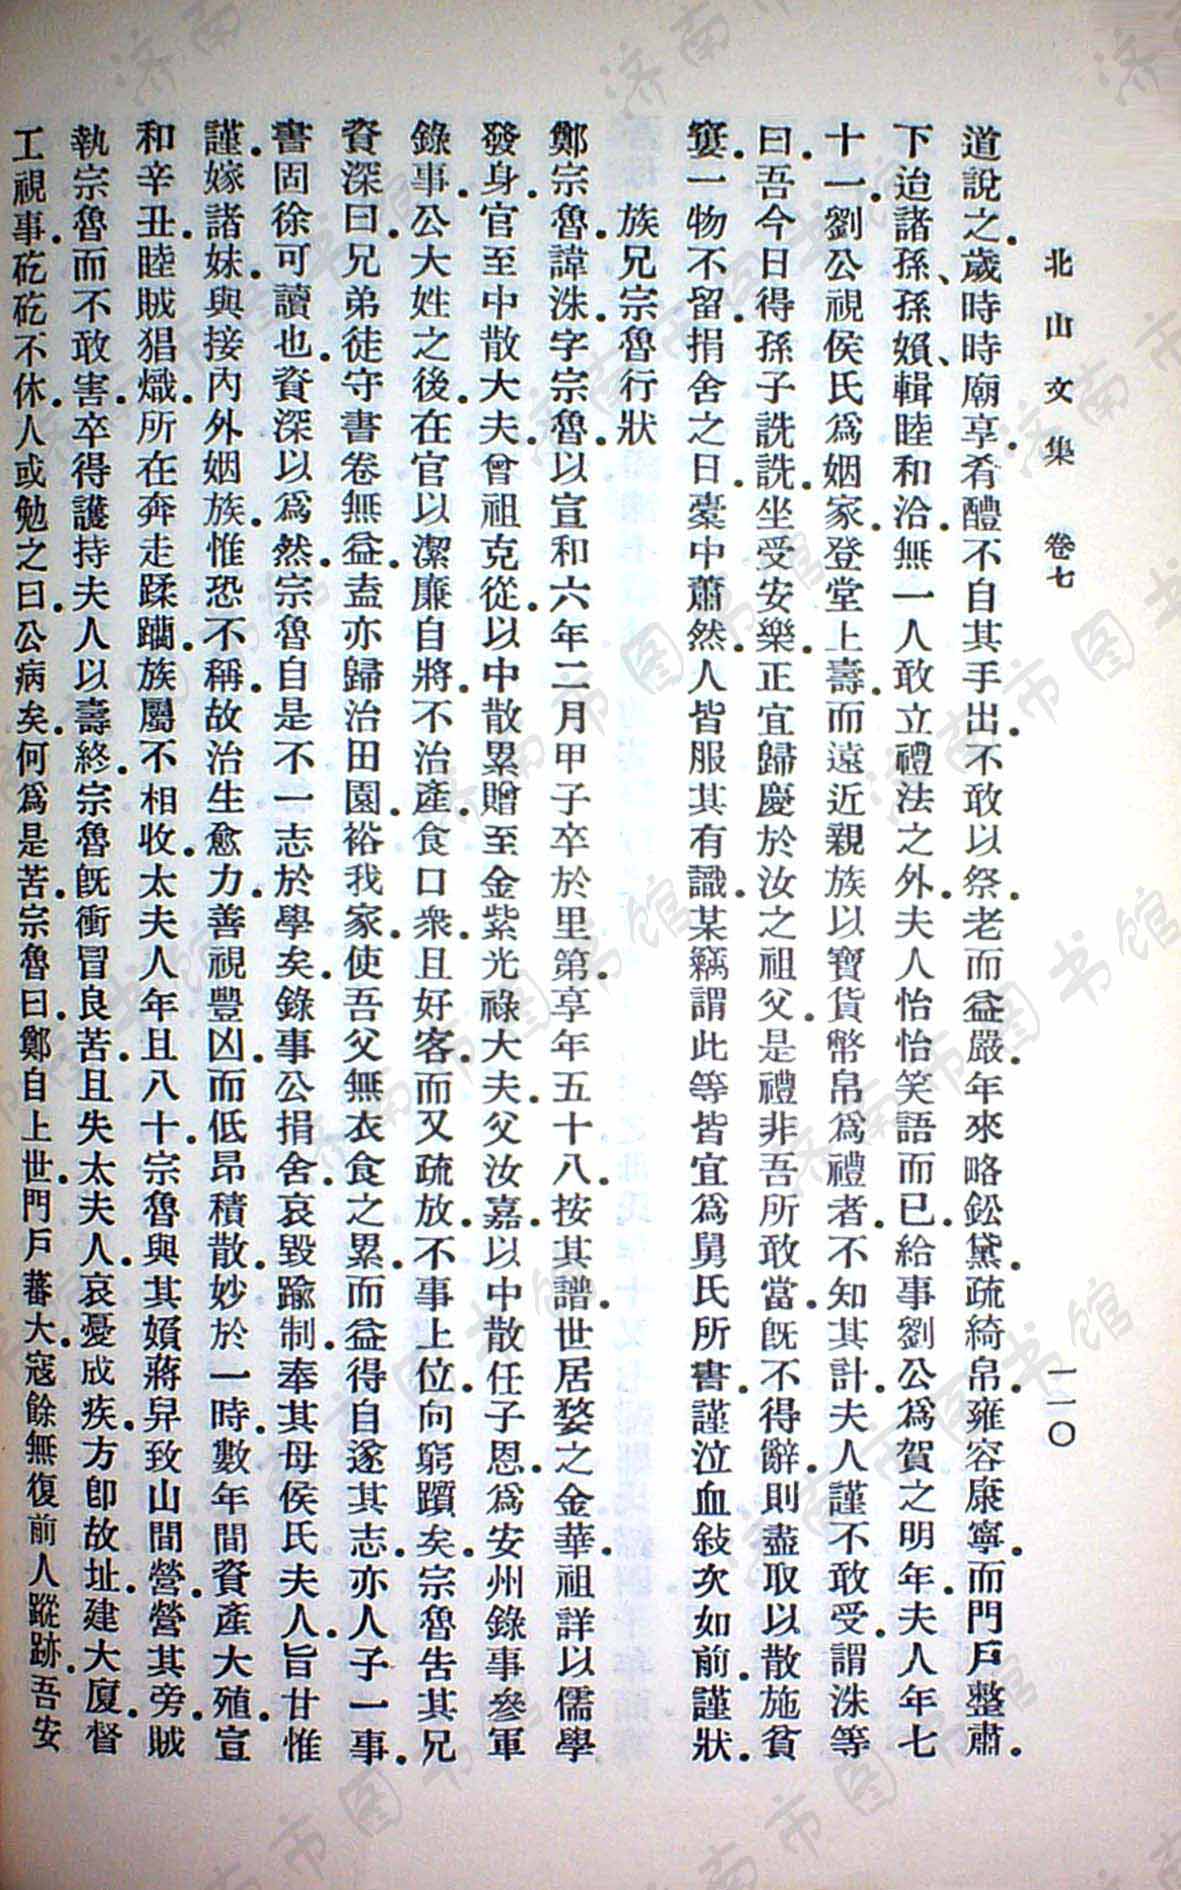 北山文集　卷七　一一〇
道說之.歲時時廟享.肴醴不自其手出.不敢以祭.老而益嚴.年來略鉛黛.疏綺帛.雍容康寧.而門戶整肅.
下迨諸孫、孫媍、輯睦和洽.無一人敢立禮法之外.夫人怡怡笑語而已.給事劉公爲賀之明年.夫人年七
十一.劉公視侯氏爲姻家.登堂上壽.而遠近親族以寶貨幣帛爲禮者.不知其計.夫人謹不敢受.謂洙等
曰.吾今日得孫子詵詵.坐受安樂.正宜歸慶於汝之祖父.是禮非吾所敢當.旣不得辭.則盡取以散施貧
窶.一物不留.捐舍之日.橐中蕭然.人皆服其有識.某竊謂此等皆宜爲舅氏所書.謹泣血敍次如前.謹狀.
族兄宗魯行狀
鄭宗魯.諱洙.字宗魯.以宣和六年二月甲子卒於里第.享年五十八.按其譜.世居婺之金華.祖詳以儒學
發身.官至中散大夫.曾祖克從.以中散累贈至金紫光祿大夫.父汝嘉.以中散任子恩.爲安州錄事參軍
錄事.公大姓之後.在官以潔廉自將.不治產.食口衆.且好客.而又疏放.不事上位.向窮躓矣.宗魯告其兄
資深曰.兄弟徒守書卷無益.盍亦歸治田園.裕我家.使吾父無衣食之累.而益得自遂其志.亦人子一事.
書固徐可讀也.資深以爲然.宗魯自是不一志於學矣.錄事公捐舍.哀毀踰制.奉其母侯氏夫人.旨甘惟
謹.嫁諸妹.與接內外姻族.惟恐不稱.故治生愈力.善視豐凶.而低昂積散.妙於一時.數年間.資產大殖.宣
和辛丑.睦賊猖熾.所在奔走蹂躪.族屬不相收.太夫人年且八十.宗魯與其媍蔣舁致山間.營營其旁.賊
執宗魯而不敢害.卒得護持夫人以壽終.宗魯旣衝冒良苦.且失太夫人.哀憂成疾.方卽故址.建大廈.督
工視事.矻矻不休.人或勉之曰.公病矣.何爲是苦.宗魯曰.鄭自上世.門戶蕃大.寇餘無復前人蹤跡.吾安